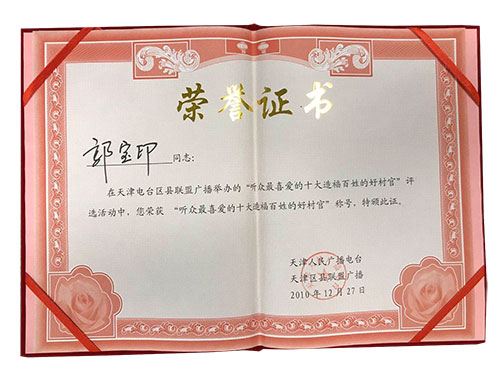 荣誉证书
郭宝印 同志：
在天津电台区县联盟广播举办的“听众最喜爱的十大造福百姓的好村官”评
选活动中，您荣获 “听众最喜爱的十大造福百姓的好村官”称号，特颁此证。
天津人民广播电台
天津区县联盟广播
2010 年 12 月 27 日